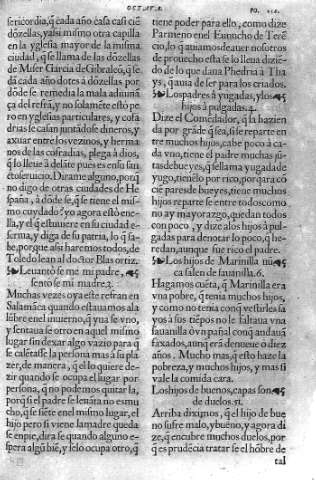 OCTAVA.
FO.
sericordia, q̃ cada año casa casi ciẽ
dõzellas, y assi mismo otra capilla
en la yglesia mayor de la misma
ciudad, q̃ se llama de las dõzellas
de Miser Garcia de Gibraleõ, q̃ se
dã cada año dotes a dõzellas por
dõde se remedia la mala aduinã
ça del refrã, y no solamẽte estò pe
ro en yglesias particulares, y cofa
drias se casan jũtãdose dineros, y
axuar entre los vezinos, y herma
nos de las cofradias, plega à dios,
q̃ lo lleue à delãte pues es en su san
cto seruicio. Dirame alguno, porq̃
no digo de otras ciudades de Hes
paña, à dõde se, q̃ se tiene el mis-
mo cuydado? yo agora estò en e-
lla, y el q̃ estuuiere en su ciudad e-
scriua, y diga de su patria, lo q̃ sa-
be, porque alsi haremos todos, de
Toledo lean al doctor Blas ortiz.
Leuantòse me mi padre,
sento se mi madre. 3.
Muchas vezes oya este refran en
Salamãca quando estauamos ala
libre en el inuierno, q̃ yua se vno,
y sentaua se otro en aquel mismo
lugar sin dexar algo vazio para q̃
se calẽtasse la persona mas à su pla
zer, de manera, q̃ el lo quiere de-
zir quando se ocupa el lugar por
persona, q̃ no podemos quitar la,
porq̃ si el padre se leuãta no esmu
cho, q̃ se siẽte en el mismo lugar, el
hijo pero si viene la madre queda
se enpie, dira se quando alguno e-
spera algũ biẽ, y se lo ocupa otro, q̃
tiene poder para ello, como dize
Parmeno en el Eunucho de Terẽ
cio, lo q̃ auiamos de auer nosotros
de prouecho esta se lo lleua diziẽ-
do de lo que daua Phedria à Tha
ys, q̃ auia de ser para los criados.
Los padres à yugadas, y los
hijos à pulgadas. 4.
Dize el Comẽdador, q̃ la haziẽn
da por grãde q̃ sea, si se reparte en
tre muchos hijos, cabe poco à ca-
da vno, tiene el padre muchas jũ-
tas de bueyes, q̃ se llama yugada de
yugo, tienelo por rico, por q̃ ra-
ciẽ pares de bueyes, tiene muchos
hijos reparte se entre todos como
no ay mayorazgo, quedan todos
con poco, y dize à los hijos à pul-
gadas para denotar lo poco, q̃ he-
redan, aunque fue rico el padre.
Los hijos de Marinilla nũ
ca salen de sauanilla. 6.
Hagamos cuẽta, q̃ Marinilla era
vna pobre, q̃ tenia muchos hijos,
y como no tenia cõq̃ vestirles sa
yos à sus tiẽpos no le faltaua vna
sauanilla ò vn pañal conq̃ andauã
faxados, aunq̃ erã de nueue o diez
años. Mucho mas, q̃ esto haze la
pobreza, y muchos hijos, y mas si
vale la comida cara.
Los hijos de buenos, capas son
de duelos. 51.
Arriba diximos, q̃ el hijo de bue
no sufre malo, y bueno, y agora di
ze, q̃ encubre muchos duelos, por
q̃ es prudẽcia tratar se el hõbre de
tal